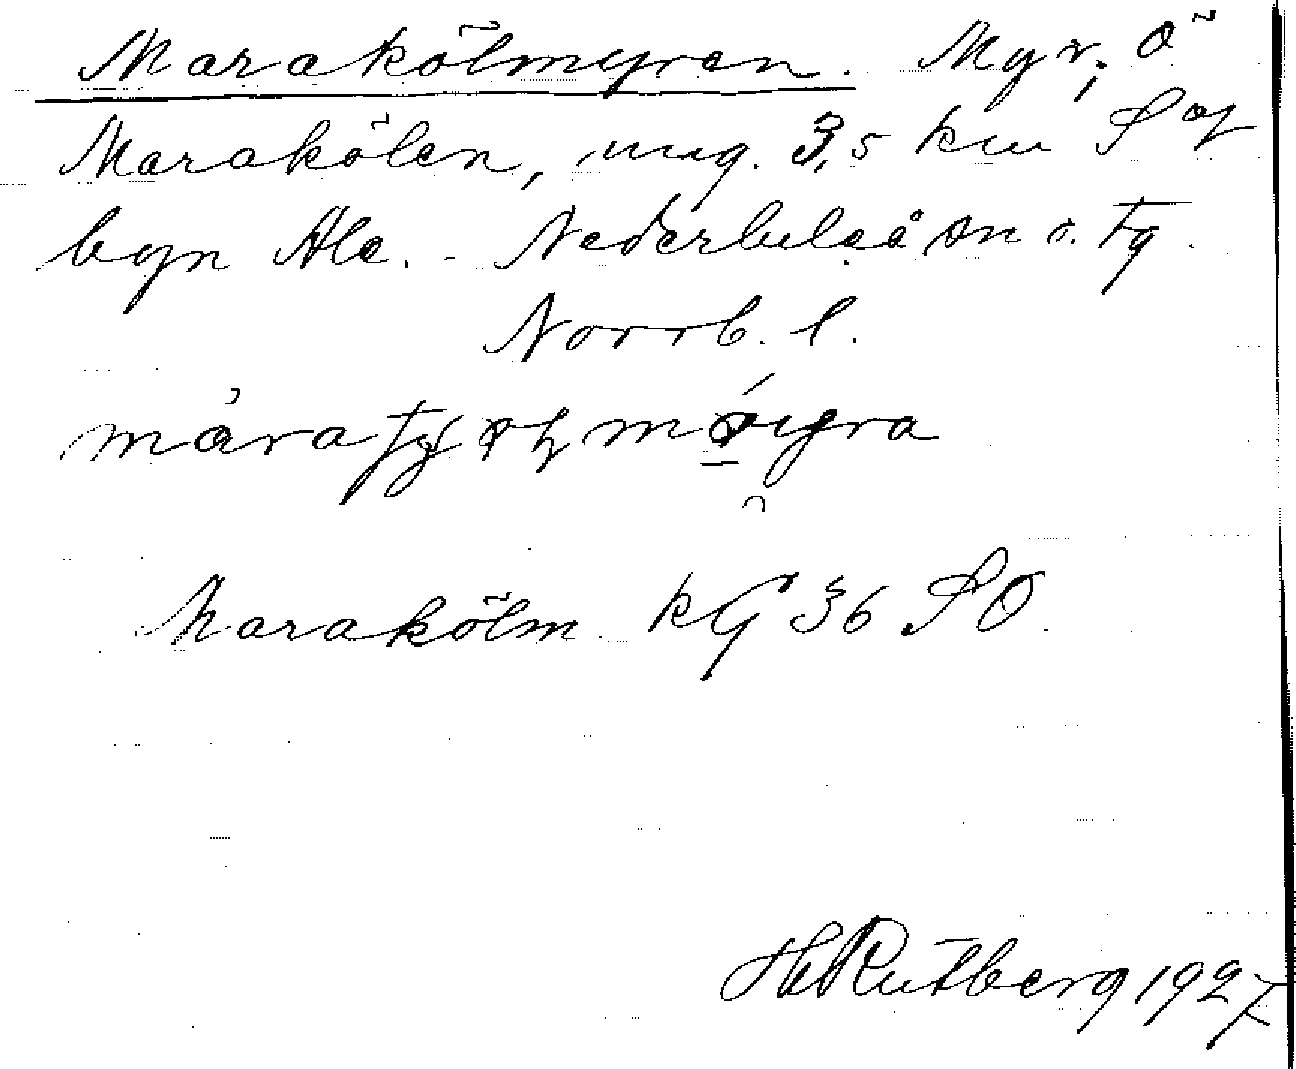 Marakölmyren. Myr; Ö
Marakölen, ung. 3,5 km S af
byn Ale. - Nederluleå sn o. tg.
Norrb. l.
Marakölm. kG 36 SO.
H Rutberg 1927